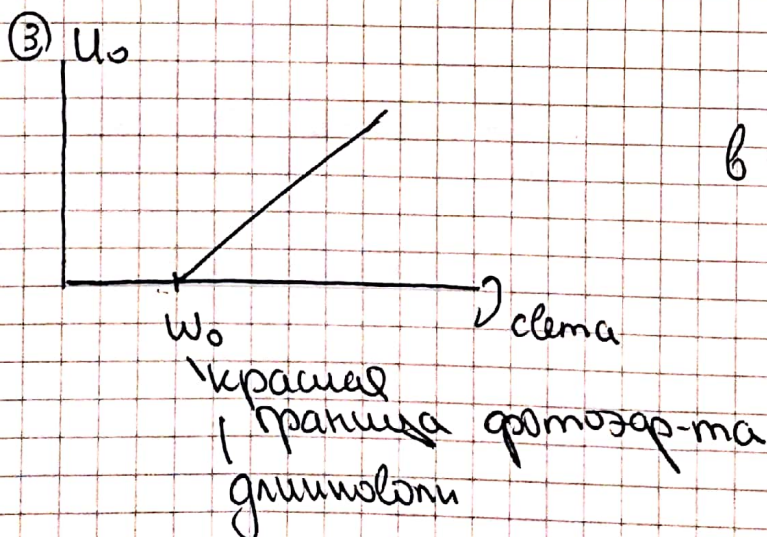 ③ U₀
в
ω₀
света
красная
граница фотоэф-та
длинноволн